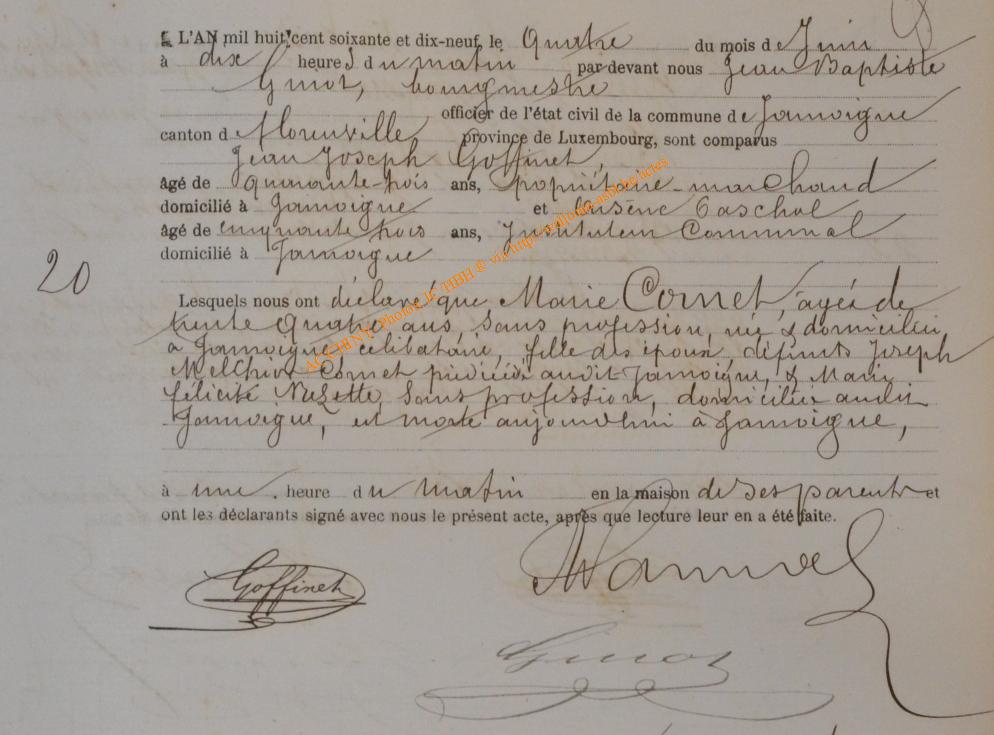 L'AN mil huit cent soixante et dix-neuf, le Quatre du mois de Juin
à dix heures du matin par devant nous Jean Baptiste
Guiot, bourgmestre
officier de l'état civil de la commune de Jamoigne
canton de florenville province de Luxembourg, sont comparus
Jean Joseph Goffinet,
âgé de quarante-trois ans, propriétaire-marchand
domicilié à Jamoigne et Arsène
âgé de cinquante trois ans, Instituteur Communal
domicilié à Jamoigne
20
Lesquels nous ont déclaré que Marie Cornet, âgée de
trente quatre ans, sans profession, née & domiciliée
à Jamoigne, célibataire, fille des époux, défunts Joseph
Melchior Cornet prédécédé audit Jamoigne, & Marie
félicité Nazette, sans profession, domiciliée audit
Jamoigne, est morte aujourd'hui à Jamoigne,
à une heure du matin en la maison de ses parents et
ont les déclarants signé avec nous le présent acte, après que lecture leur en a été faite.
Goffinet
Guiot